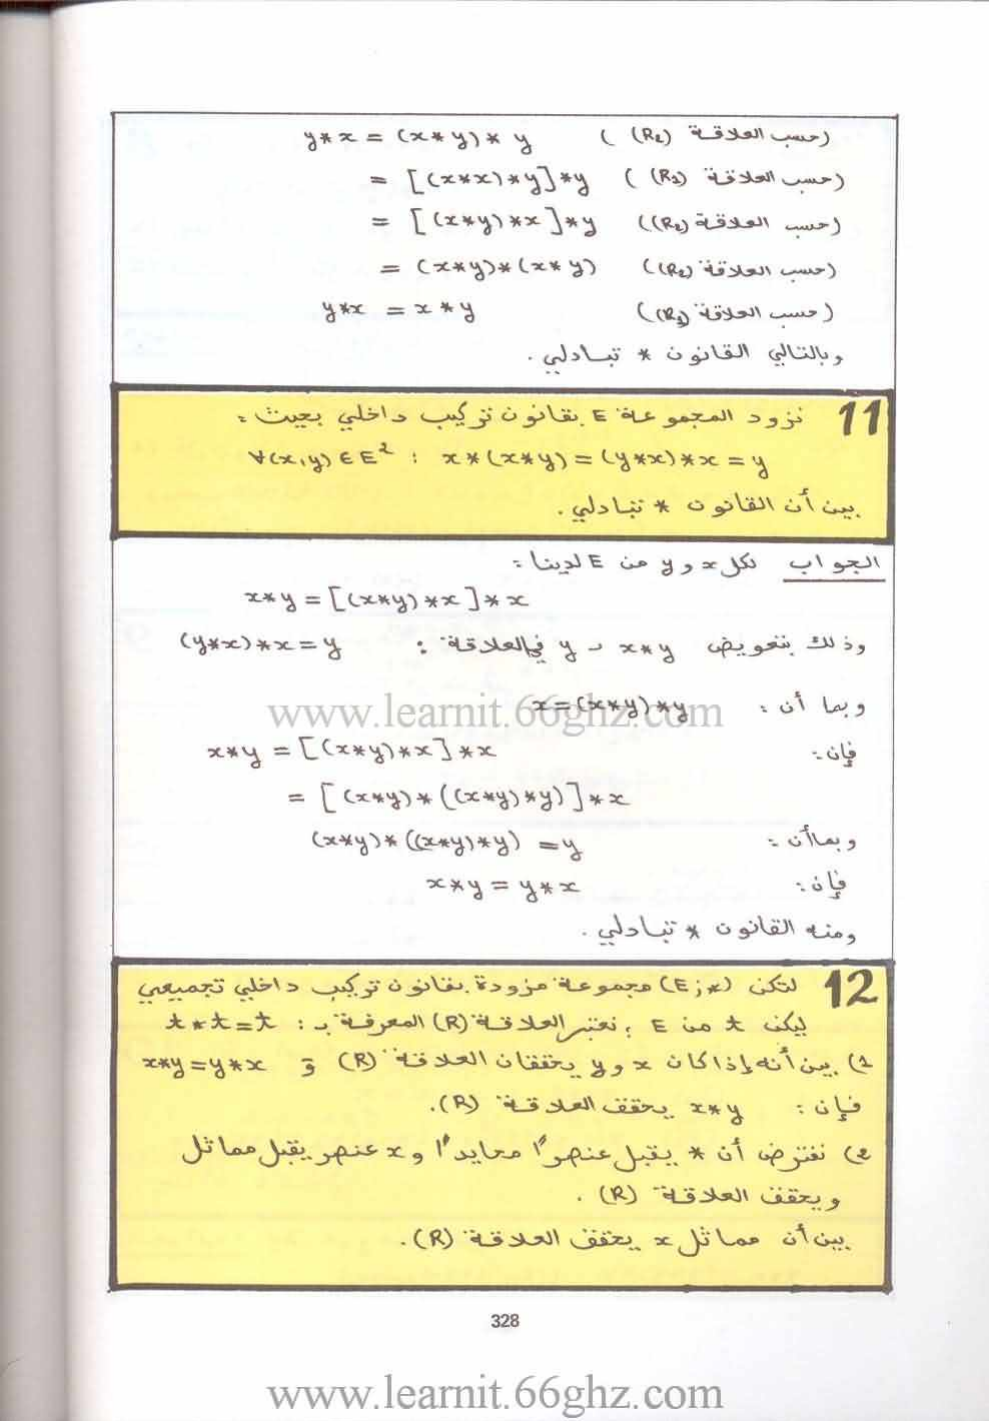 y*x = (x*y)*y (حسب العلاقة (R₂))
= [(x*x)*y]*y (حسب العلاقة (R₁))
= [(x*y)*x]*y (حسب العلاقة (R₂))
= (x*y)*(x*y) (حسب العلاقة (R₂))
y*x = x*y (حسب العلاقة (R₁))
وبالتالي القانون * تبادلي .
11 نزود المجموعة E بقانون تركيب داخلي بحيث :
∀(x,y)∈E² : x*(x*y)=(y*x)*x=y
بين أن القانون * تبادلي .
الجواب لكل x و y من E لدينا :
x*y=[(x*y)*x]*x
وذلك بتعويض x*y ب y في العلاقة : (y*x)*x=y
وبما أن : x=(x*y)*y
فإن : x*y=[(x*y)*x]*x
=[(x*y)*((x*y)*y)]*x
وبما أن : (x*y)*((x*y)*y) =y
فإن : x*y=y*x
ومنه القانون * تبادلي .
12 لتكن (E;*) مجموعة مزودة بقانون تركيب داخلي تجميعي
ليكن t من E ; نعتبر العلاقة (R) المعرفة بـ : t*t=t
1) بين أنه إذا كان x و y يحققان العلاقة (R) و x*y=y*x
فإن : x*y يحقق العلاقة (R).
2) نفترض أن * يقبل عنصرًا محايدًا و x عنصر يقبل مماثل
ويحقق العلاقة (R) .
بين أن مماثل x يحقق العلاقة (R).
328
www.learnit.66ghz.com
www.learnit.66ghz.com